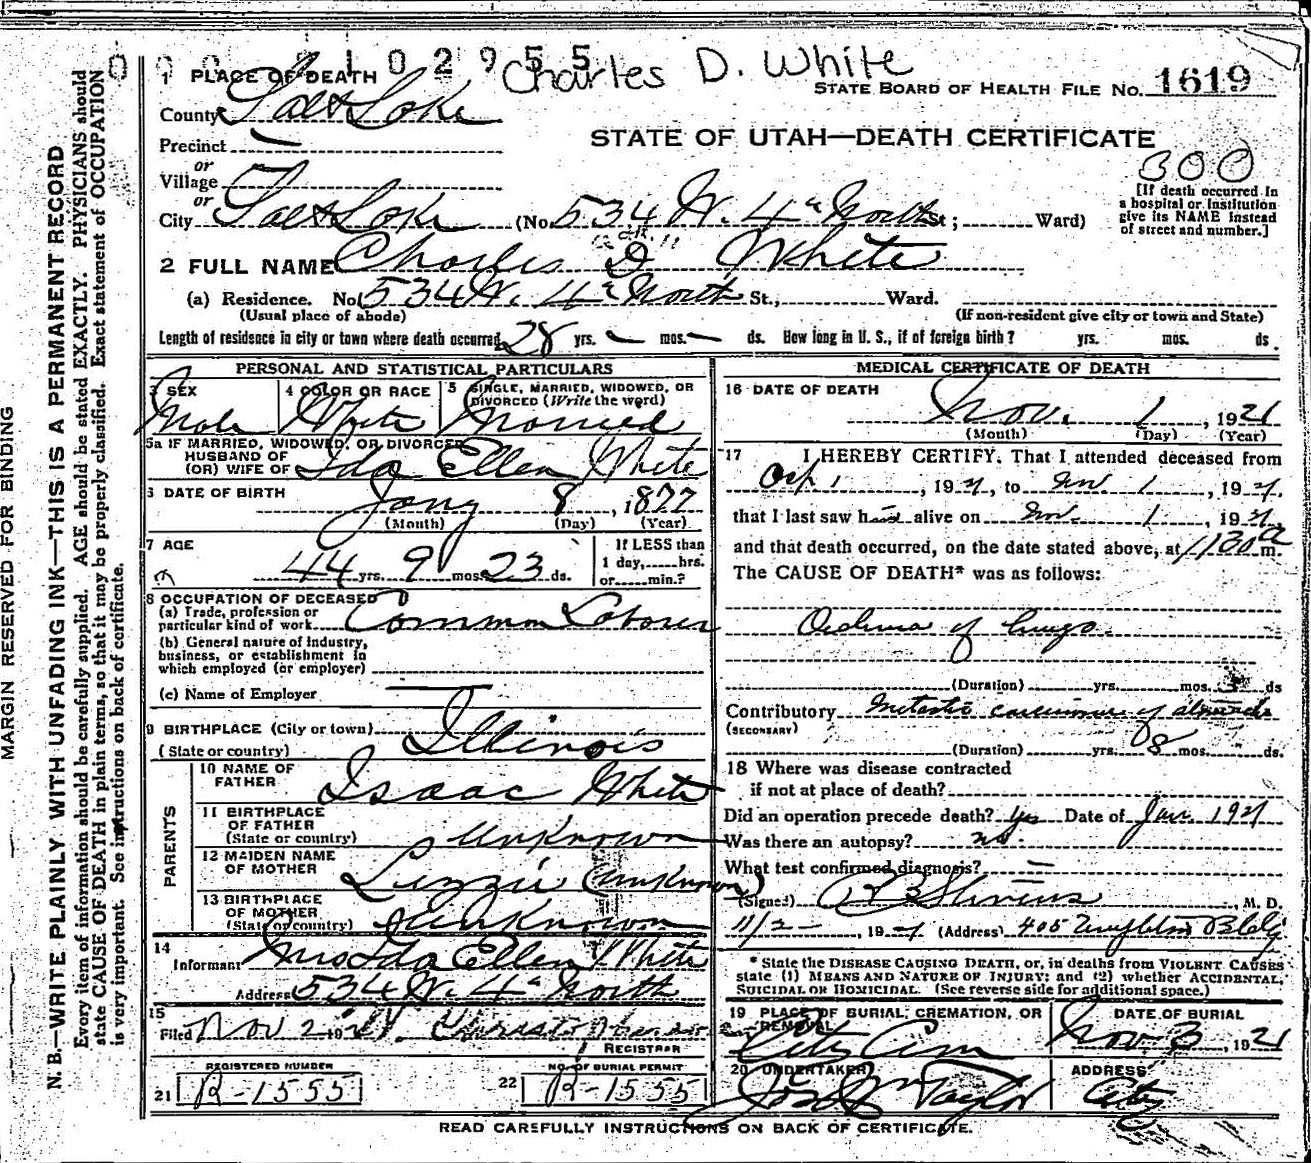 0 0 0 1 0 2 9 5 5
Charles D. White
1 PLACE OF DEATH
STATE BOARD OF HEALTH FILE NO. 1619
County Salt Lake
STATE OF UTAH—DEATH CERTIFICATE
Precinct
300
or
Village
or
[If death occurred in a hospital or institution give its NAME instead of street and number.]
City Salt Lake (No. 534 W. 4th North St; Ward)
2 FULL NAME Charles D White
(a) Residence. No. 534 W. 4th North St., Ward.
(Usual place of abode) (If non-resident give city or town and State)
Length of residence in city or town where death occurred 28 yrs. — mos. — ds. How long in U. S., if of foreign birth? yrs. mos. ds.
PERSONAL AND STATISTICAL PARTICULARS
3 SEX Male
4 COLOR OR RACE White
5 SINGLE, MARRIED, WIDOWED, OR DIVORCED (Write the word) Married
5a IF MARRIED, WIDOWED, OR DIVORCED
HUSBAND OF
(OR) WIFE OF Ida Ellen White
6 DATE OF BIRTH Jany 8, 1877
(Month) (Day) (Year)
7 AGE 44 yrs. 9 mos. 23 ds.
If LESS than 1 day, hrs. or min.?
8 OCCUPATION OF DECEASED
(a) Trade, profession or particular kind of work Common Laborer
(b) General nature of Industry, business, or establishment in which employed (or employer)
(c) Name of Employer
9 BIRTHPLACE (City or town)
(State or country) Illinois
PARENTS
10 NAME OF FATHER Isaac White
11 BIRTHPLACE OF FATHER (State or country) unknown
12 MAIDEN NAME OF MOTHER Lizzie (unknown)
13 BIRTHPLACE OF MOTHER (State or country) Unknown
14 Informant Mrs Ida Ellen White
Address 534 W. 4th North
15 Filed Nov 2 1921
REGISTRAR
REGISTERED NUMBER
21 R-1555
NO. OF BURIAL PERMIT
22 R-1555
MEDICAL CERTIFICATE OF DEATH
16 DATE OF DEATH Nov. 1, 1921
(Month) (Day) (Year)
17 I HEREBY CERTIFY, That I attended deceased from
1, 1921, to Nov. 1, 1921
that I last saw him alive on Nov. 1, 1921
and that death occurred, on the date stated above, at 1130 a m.
The CAUSE OF DEATH* was as follows:
Oedema of lungs.
(Duration) yrs. mos. 3 ds
Contributory Metastic carcinoma of abdomen
(SECONDARY)
(Duration) yrs. 8 mos. ds.
18 Where was disease contracted
if not at place of death?
Did an operation precede death? Yes Date of Jan 1921
Was there an autopsy? no.
What test confirmed diagnosis? —
(Signed) R B Stevens, M. D.
11/2, 1921 (Address) 405 Templeton Bldg
* State the DISEASE CAUSING DEATH, or, in deaths from VIOLENT CAUSES
state (1) MEANS AND NATURE OF INJURY; and (2) whether ACCIDENTAL,
SUICIDAL OR HOMICIDAL. (See reverse side for additional space.)
19 PLACE OF BURIAL, CREMATION, OR REMOVAL City Cem
DATE OF BURIAL Nov 3, 1921
20 UNDERTAKER Jos Wm Taylor
ADDRESS City
READ CAREFULLY INSTRUCTIONS ON BACK OF CERTIFICATE.
MARGIN RESERVED FOR BINDING
N. B.—WRITE PLAINLY WITH UNFADING INK—THIS IS A PERMANENT RECORD
Every item of information should be carefully supplied. AGE should be stated EXACTLY. PHYSICIANS should
state CAUSE OF DEATH in plain terms, so that it may be properly classified. Exact statement of OCCUPATION
is very important. See instructions on back of certificate.